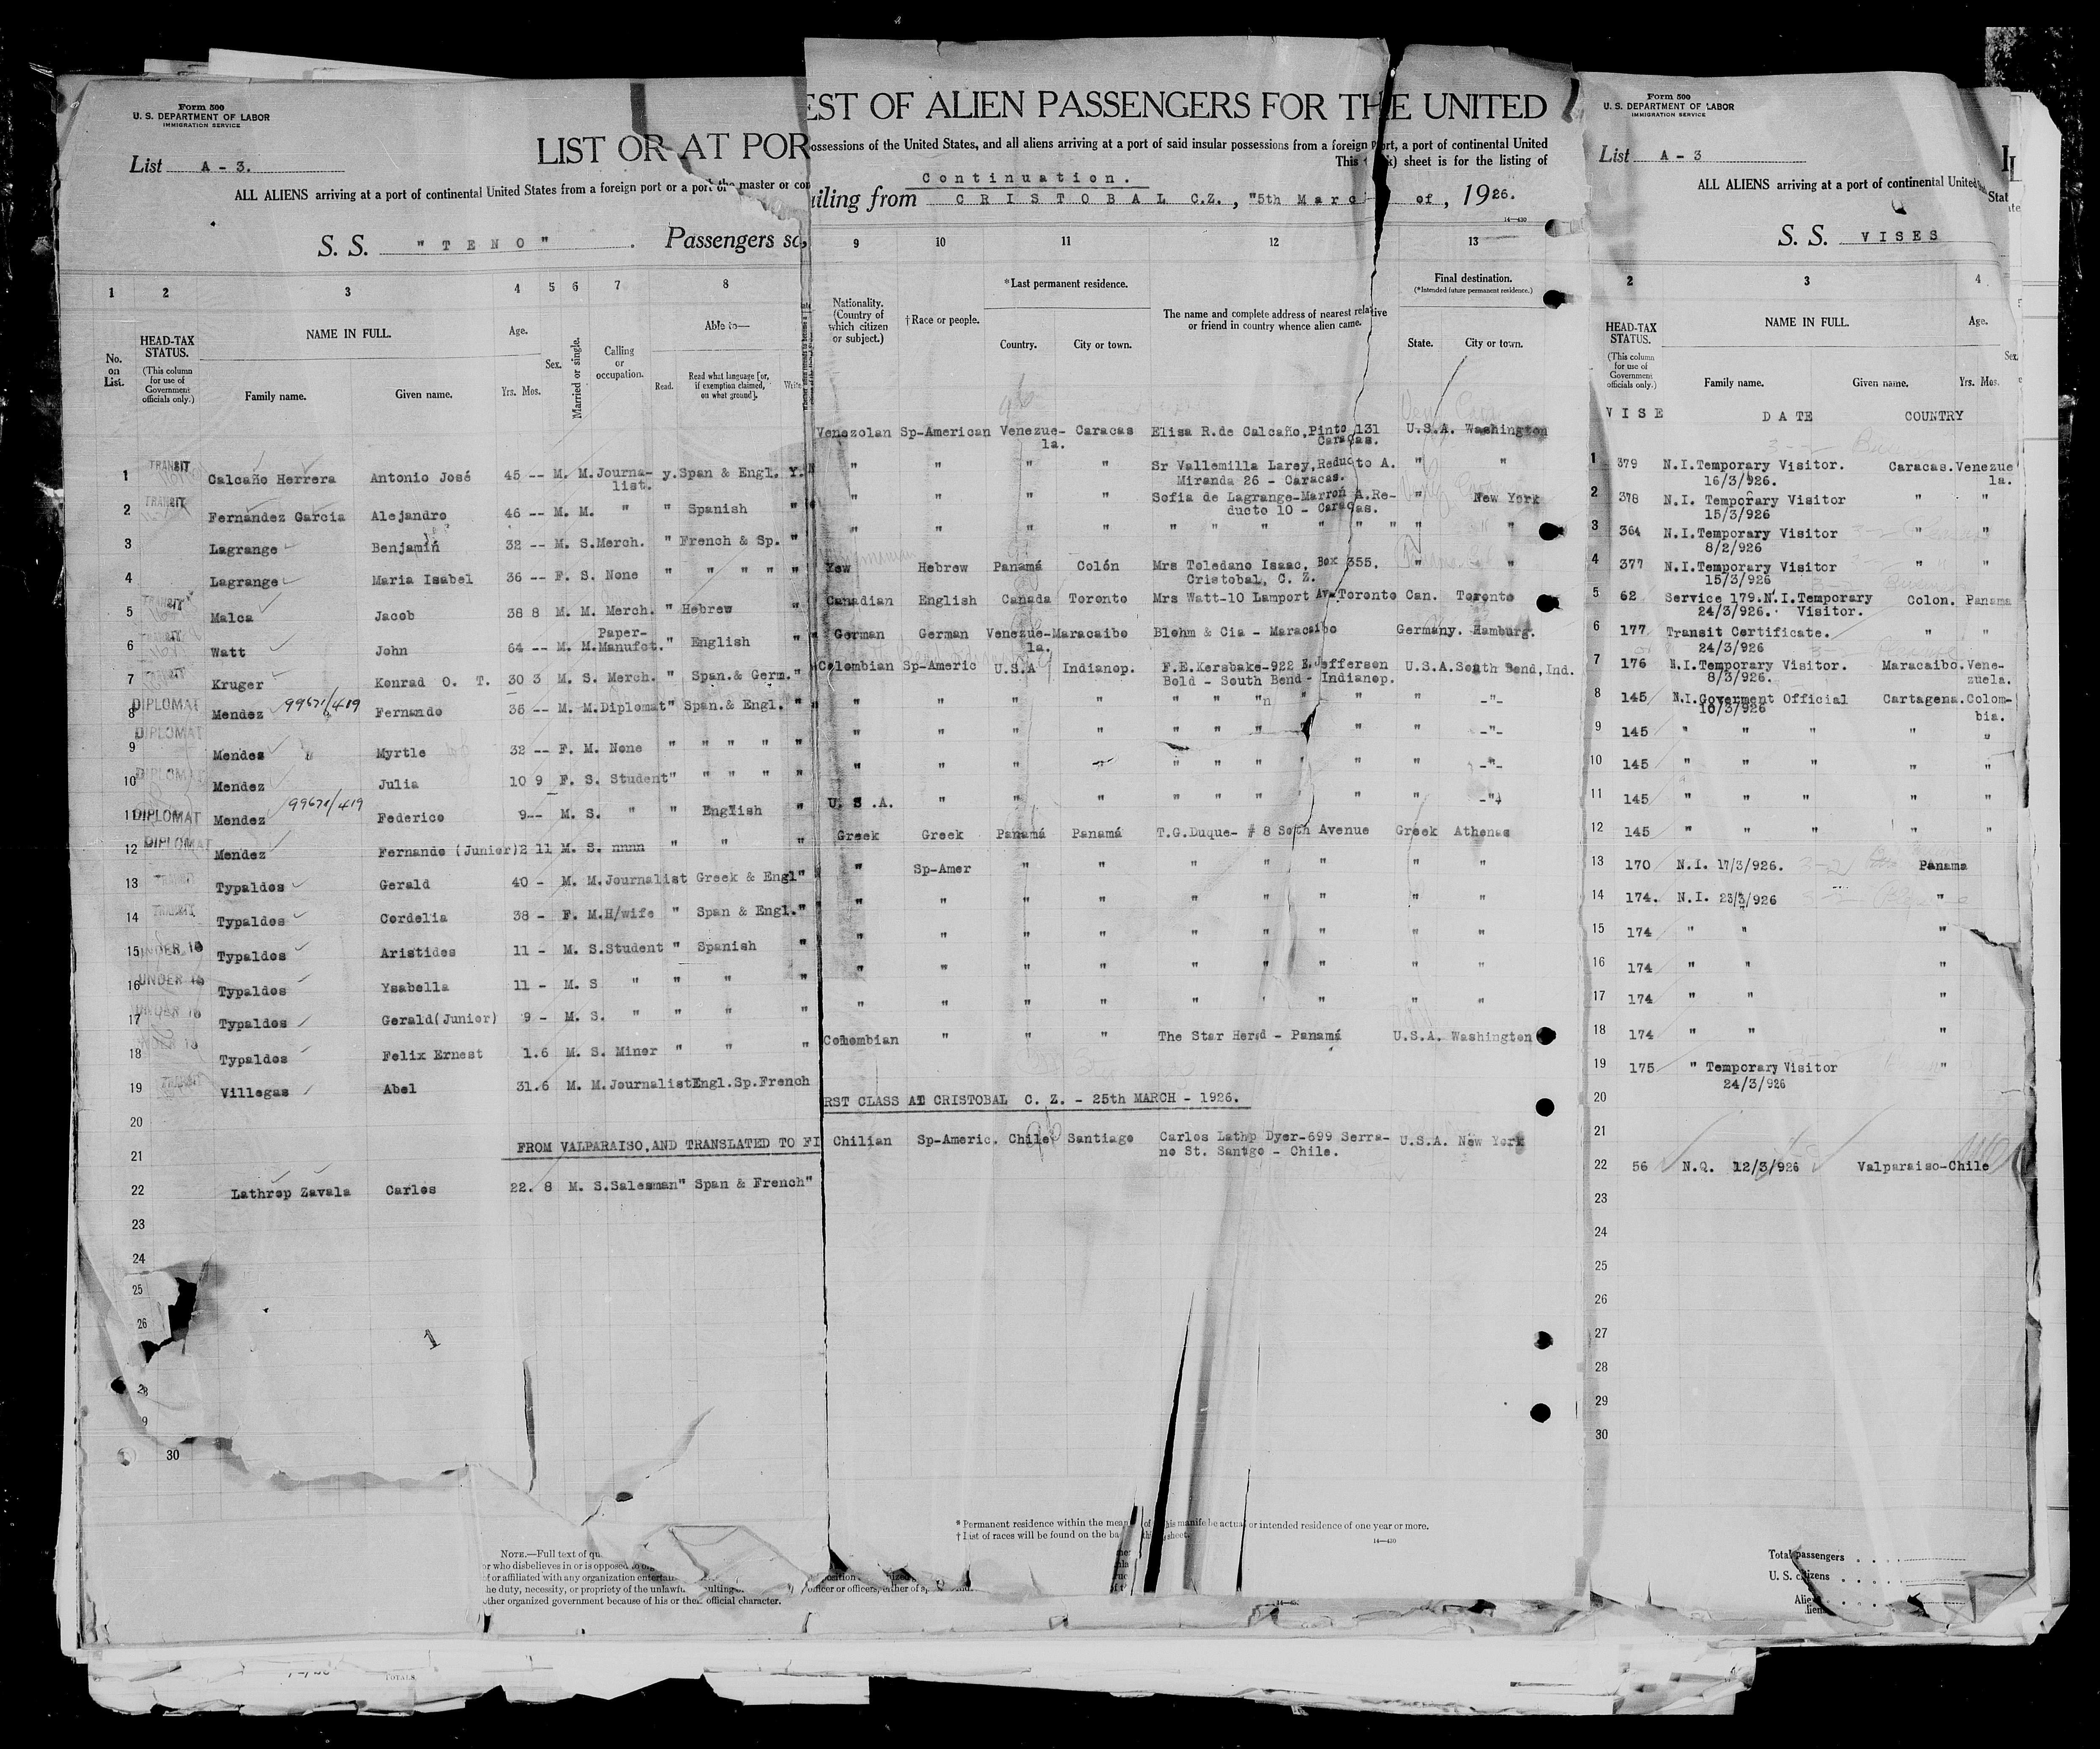 Form 500
U. S. DEPARTMENT OF LABOR
IMMIGRATION SERVICE
List A - 3.
LIST OR AT POR
ALL ALIENS arriving at a port of continental United States from a foreign port or a port the master or com
S. S. "TENO" . Passengers sa
1 2 3 4 5 6 7 8
No. on List.
HEAD-TAX STATUS.
(This column for use of Government officials only.)
NAME IN FULL.
Family name. Given name.
Age.
Yrs. Mos.
Sex.
Married or single.
Calling or occupation.
Able to—
Read. Read what language [or, if exemption claimed, on what ground]. Write
1 TRANSIT Calcaño Herrera Antonio José 45 -- M. M. Journa- y. Span & Engl. Y.
list.
2 TRANSIT Fernandez Garcia Alejandro 46 -- M. M. " " Spanish "
3 Lagrange Benjamin 32 -- M. S. Merch. " French & Sp. "
4 Lagrange Maria Isabel 36 -- F. S. None " " " " " "
5 TRANSIT Malca Jacob 38 8 M. M. Merch. " Hebrew "
Paper-
6 TRANSIT Watt John 64 -- M. M. Manufct. " English "
7 TRANSIT Kruger Konrad O. T. 30 3 M. S. Merch. " Span. & Germ. "
8 DIPLOMAT Mendez 99671/419 Fernando 35 -- M. M. Diplomat " Span. & Engl. "
9 DIPLOMAT Mendez Myrtle 32 -- F. M. None " " " " "
10 DIPLOMAT Mendez Julia 10 9 F. S. Student " " " " "
11 DIPLOMAT Mendez 99671/419 Federico 9-- M. S. " " English "
12 DIPLOMAT Mendez Fernando (Junior) 2 11 M. S. nnnn " " "
13 TRANSIT Typaldos Gerald 40 - M. M. Journalist Greek & Engl "
14 TRANSIT Typaldos Cordelia 38 - F. M. H/wife " Span & Engl. "
15 UNDER 16 Typaldos Aristides 11 - M. S. Student " Spanish "
16 UNDER 16 Typaldos Ysabella 11 - M. S " " " "
17 UNDER 16 Typaldos Gerald(Junior) 9 - M. S. " " " "
18 Typaldos Felix Ernest 1.6 M. S. Minor " " "
19 TRANSIT Villegas Abel 31.6 M. M. Journalist Engl.Sp.French
20
21 FROM VALPARAISO, AND TRANSLATED TO FI
22 Lathrop Zavala Carlos 22. 8 M. S. Salesman " Span & French "
23
24
25
26
1
28
9
30
NOTE.—Full text of qu
or who disbelieves in or is opposed to or
of or affiliated with any organization entertain
he duty, necessity, or propriety of the unlawfu
other organized government because of his or their official character.
officer or officers, either of sp
TOTALS
EST OF ALIEN PASSENGERS FOR THE UNITED
ossessions of the United States, and all aliens arriving at a port of said insular possessions from a foreign port, a port of continental United
This sheet is for the listing of
Continuation.
iling from CRISTOBAL C.Z., "5th Marc of , 1926.
14—430
9 10 11 12 13
Nationality. (Country of which citizen or subject.)
†Race or people.
*Last permanent residence.
Country. City or town.
The name and complete address of nearest relative or friend in country whence alien came.
Final destination.
(*Intended future permanent residence.)
State. City or town.
Venezolan Sp-American Venezue- Caracas Elisa R.de Calcaño,Pinto 131 U.S.A. Washington
la. Caracas.
" " " " Sr Vallemilla Larey,Reducto A. " "
Miranda 26 - Caracas.
" " " " Sofia de Lagrange-Marron A.Re- " New York
ducto 10 - Caracas.
" " " " " " " " " " " "
Yew Hebrew Panamá Colón Mrs Toledano Isaac, Box 355. " "
Cristobal, C. Z.
Canadian English Canada Toronto Mrs Watt-10 Lamport Av.Toronto Can. Toronto
German German Venezue- Maracaibo Blohm & Cia - Maracaibo Germany. Hamburg.
la.
Colombian Sp-Americ U.S.A Indianop. F.E.Kersbake-922 E.Jefferson U.S.A. South Bend,Ind.
Bold - South Bend - Indianop.
" " " " " " " "n " " " -"-
" " " " " " " " " " -"-
" " " " " " " " " -"-
U. S .A. " " " " " " " " " -"-
Greek Greek Panamá Panamá T.G.Duque- # 8 Soth Avenue Greek Athenas
" Sp-Amer " " " " " " "
" " " " " " " " "
" " " " " " " " "
" " " " " " " " "
" " " " " ' " " "
Colombian " " " The Star Herd - Panamá U.S.A. Washington
RST CLASS AT CRISTOBAL C. Z. - 25th MARCH - 1926.
Chilian Sp-Americ. Chile Santiago Carlos Lathp Dyer-699 Serra- U.S.A. New York
no St. Santgo - Chile.
* Permanent residence within the mean of this manife be actual or intended residence of one year or more.
† List of races will be found on the ba this sheet.
14—430
Form 500
U. S. DEPARTMENT OF LABOR
IMMIGRATION SERVICE
List A - 3
ALL ALIENS arriving at a port of continental United
S. S. VISES
2 3 4
HEAD-TAX STATUS.
(This column for use of Government officials only.)
NAME IN FULL.
Family name. Given name.
Age.
Yrs. Mos.
Sex.
VISE DATE COUNTRY
1 379 N.I.Temporary Visitor. Caracas.Venezue
16/3/926. la.
2 378 N.I. Temporary Visitor " "
15/3/926
3 364 N.I.Temporary Visitor " "
8/2/926
4 377 N.I.Temporary Visitor " "
15/3/926
5 62 Service 179.N.I.Temporary Colon. Panama
24/3/926. Visitor.
6 177 Transit Certificate. " "
24/3/926
7 176 N.I.Temporary Visitor. Maracaibo.Vene-
8/3/926. zuela.
8 145 N.I.Goverment Official Cartagena.Colom-
10/3/926 bia.
9 145 " " " " "
10 145 " " " " "
11 145 " " " " "
12 145 " " " " "
13 170 N.I. 17/3/926. Panama
14 174. N.I. 23/3/926 "
15 174 " " "
16 174 " " "
17 174 " " "
18 174 " " "
19 175 " Temporary Visitor "
24/3/926
20
21
22 56 N.Q. 12/3/926 Valparaiso-Chile
23
24
25
26
27
28
29
30
Total passengers
U. S. citizens